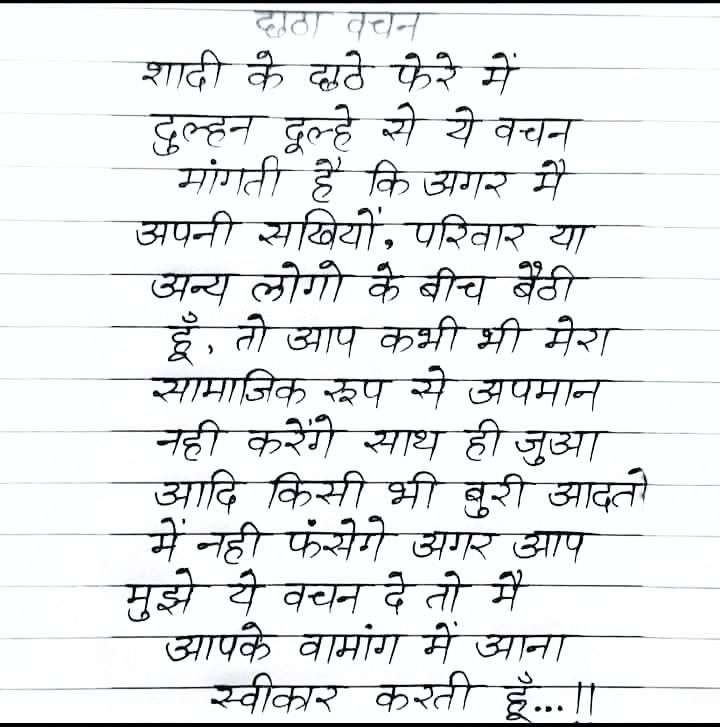 छठा वचन
शादी के छठे फेरे में
दुल्हन दूल्हे से ये वचन
मांगती हैं कि अगर मैं
अपनी सखियों, परिवार या
अन्य लोगो के बीच बैठी
हूँ, तो आप कभी भी मेरा
सामाजिक रूप से अपमान
नही करेंगे साथ ही जुआ
आदि किसी भी बुरी आदतो
में नही फंसेगे अगर आप
मुझे ये वचन दे तो मैं
आपके वामांग में आना
स्वीकार करती हूँ...!!